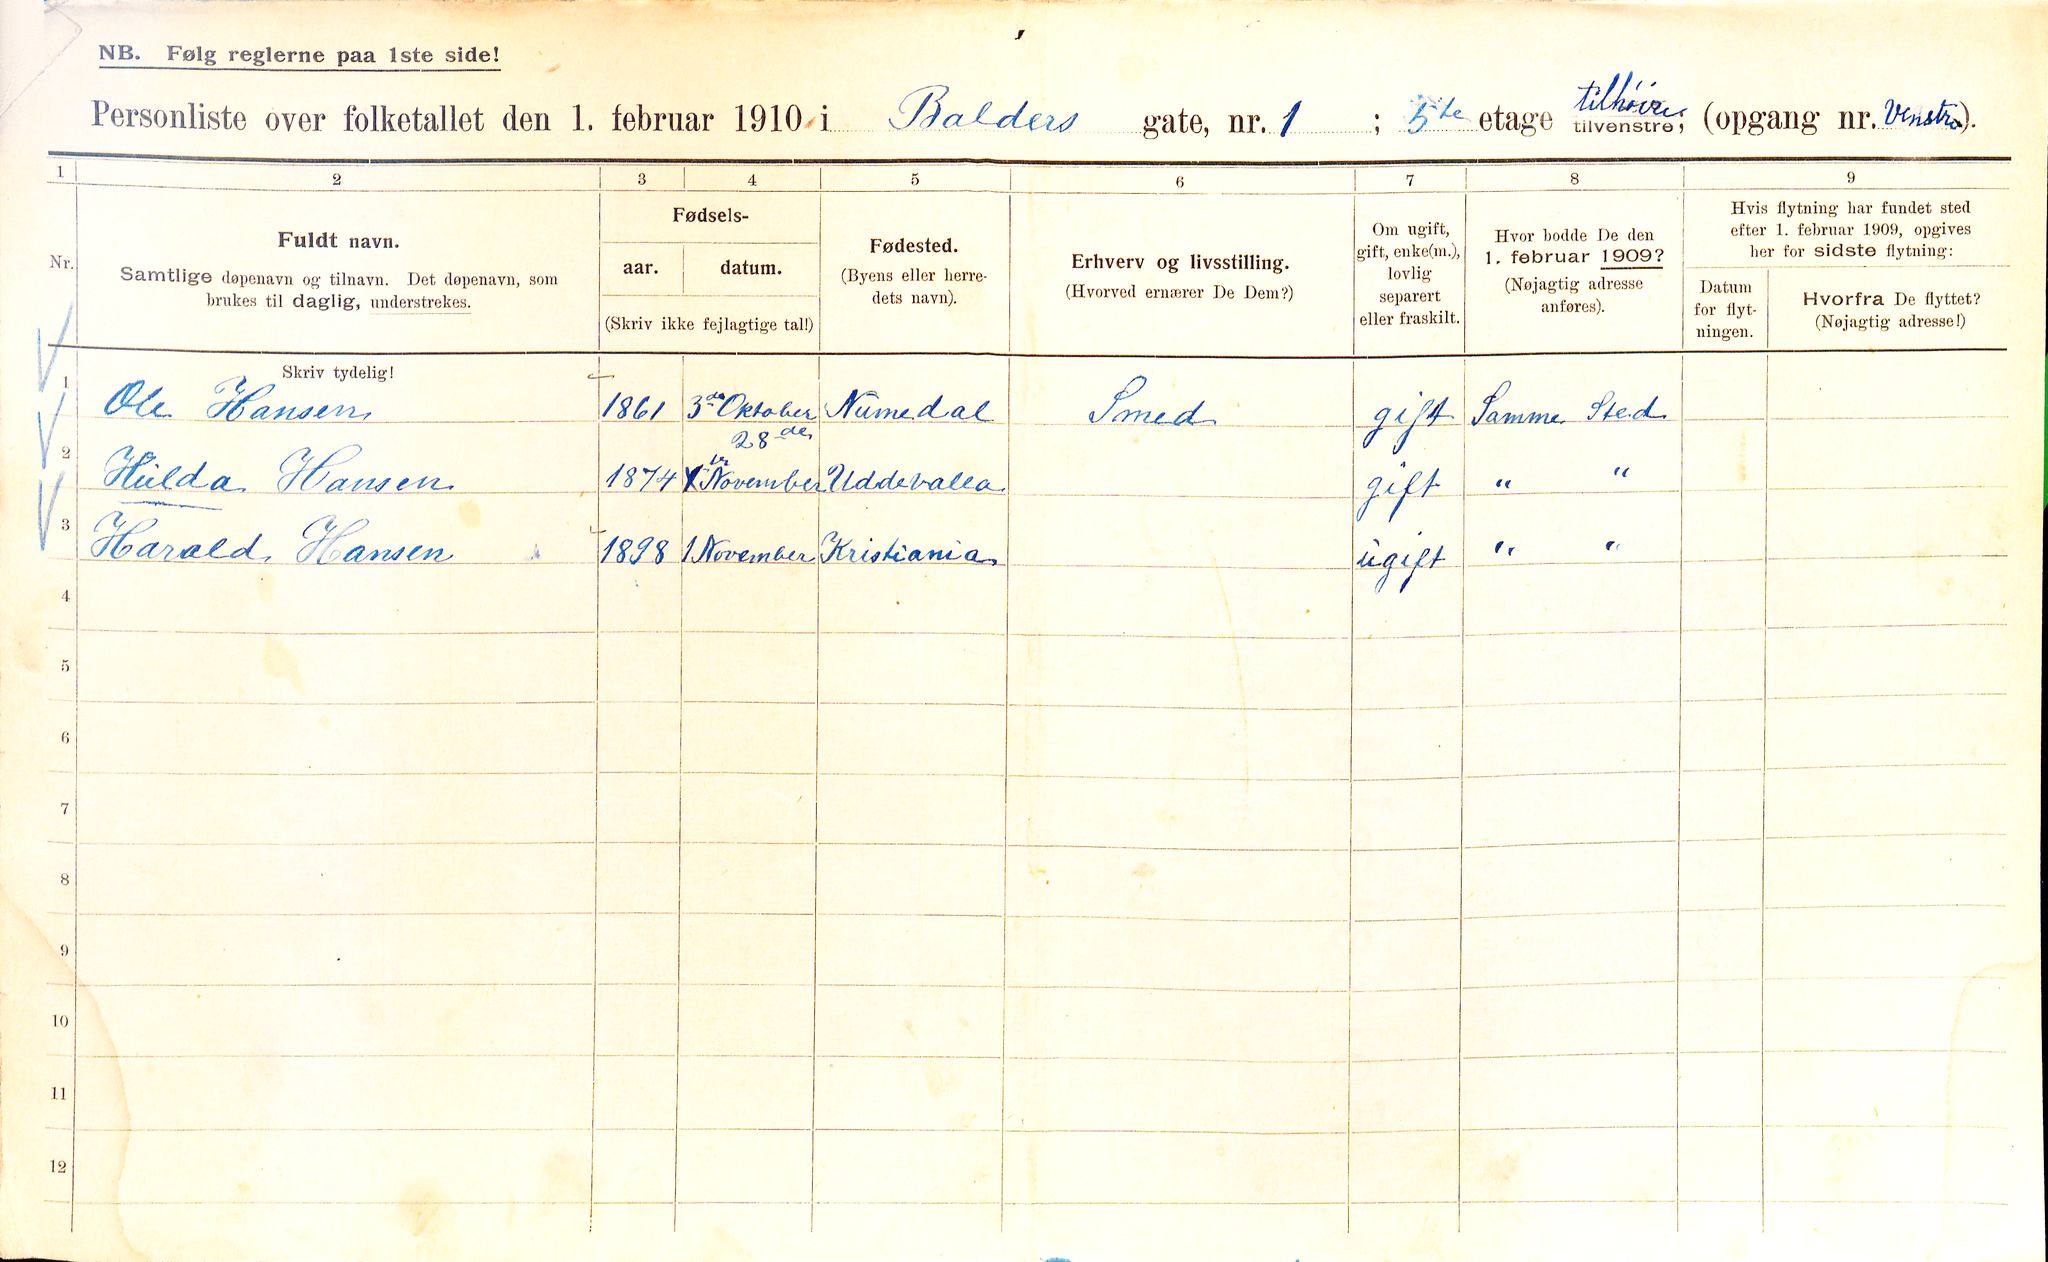 NB. Følg reglerne paa 1ste side!
Personliste over folketallet den 1. februar 1910 i Balders gate, nr. 1 ; 5te etage tilhøire tilvenstre, (opgang nr. Venstre).
1 2 3 4 5 6 7 8 9
Nr.
Fuldt navn.
Samtlige døpenavn og tilnavn. Det døpenavn, som
brukes til daglig, understrekes.
Fødsels-
aar. datum.
(Skriv ikke fejlagtige tal!)
Fødested.
(Byens eller herre-
dets navn).
Erhverv og livsstilling.
(Hvorved ernærer De Dem?)
Om ugift,
gift, enke(m.),
lovlig
separert
eller fraskilt.
Hvor bodde De den
1. februar 1909?
(Nøjagtig adresse
anføres).
Hvis flytning har fundet sted
efter 1. februar 1909, opgives
her for sidste flytning:
Datum
for flyt-
ningen.
Hvorfra De flyttet?
(Nøjagtig adresse!)
Skriv tydelig!
1 Ole Hansen 1861 3de Oktober Numedal Smed gift Samme Sted
28de
2 Hulda Hansen 1874 November Uddevalla gift " "
3 Harald Hansen 1898 1 November Kristiania ugift " "
4
5
6
7
8
9
10
11
12